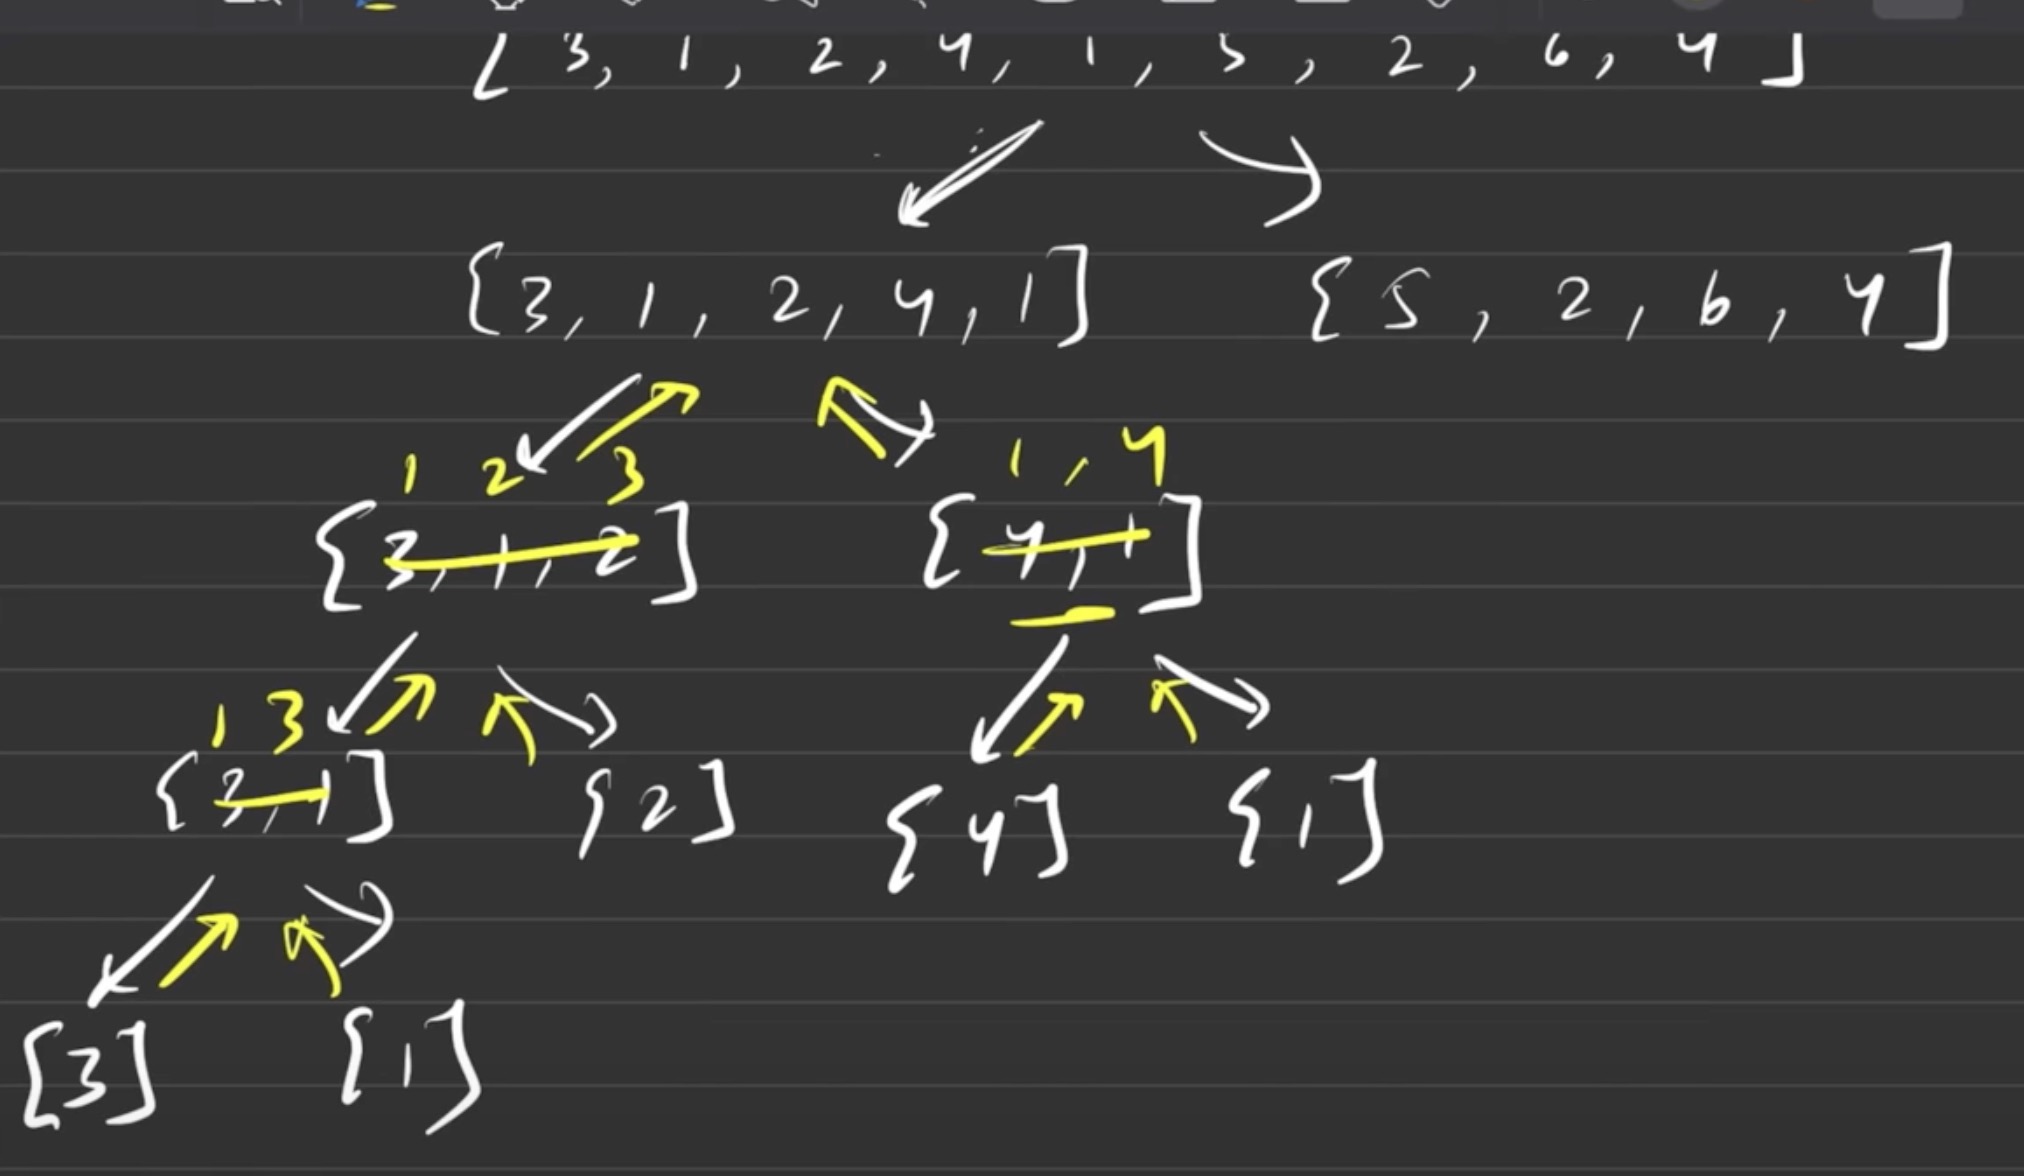 [ 3, 1, 2, 4, 1, 5, 2, 6, 4 ]
[3, 1, 2, 4, 1] [5, 2, 6, 4]
1 2 3 1, 4
[3, 1, 2] [4, 1]
1 3
[3, 1] [2] [4] [1]
[3] [1]